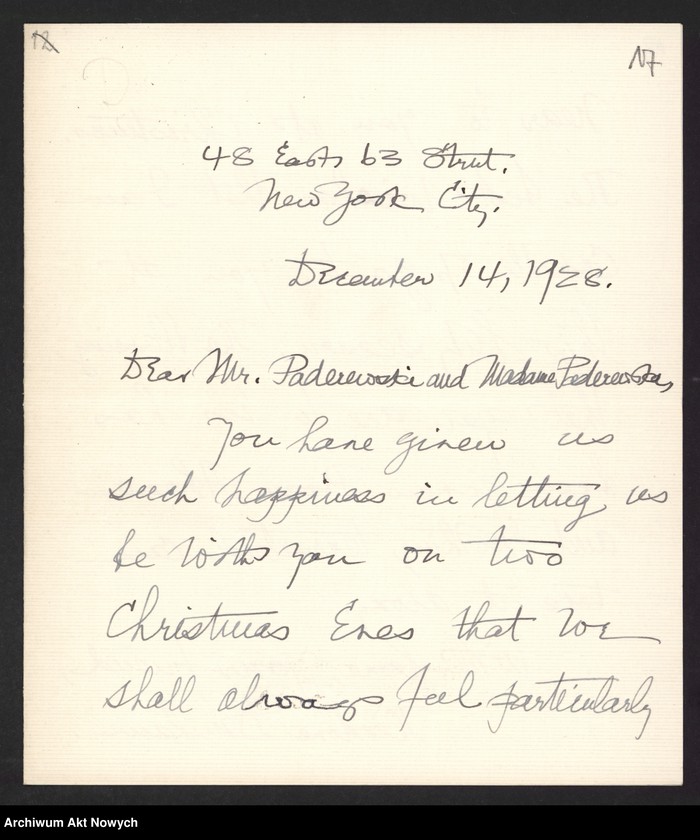 12
17
48 East 63 Street.
New York City.
December 14, 1928.
Dear Mr. Paderewski and Madame Paderewska,
You have given us
such happiness in letting us
be with you on two
Christmas Eves that we
shall always feel particularly
Archiwum Akt Nowych